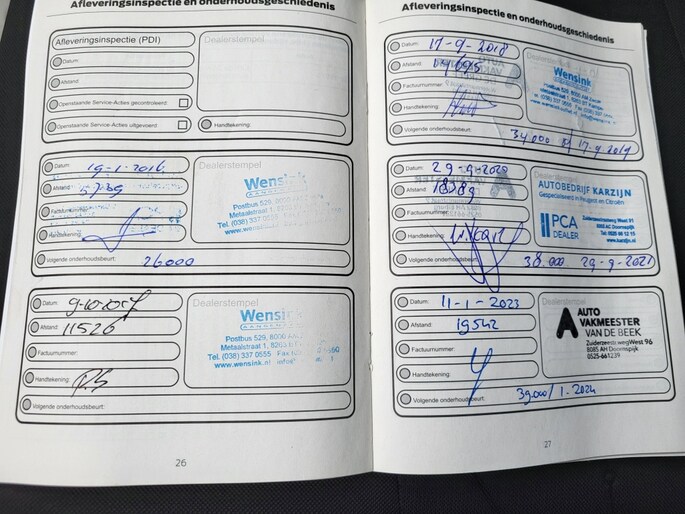 Afleveringsinspectie en onderhoudsgeschiedenis
Afleveringsinspectie (PDI)
Dealerstempel
Datum:
Afstand:
Openstaande Service-Acties gecontroleerd:
Openstaande Service-Acties uitgevoerd:
Handtekening:
Datum: 19-1-2016
Dealerstempel
Afstand:
Factuurnummer:
Handtekening:
Wensink
Postbus 529, 8000
Metaalstraat 1, 8263
Tel. (038) 337 0555
www.wensink
Volgende onderhoudsbeurt: 26000
Datum: 9-10-2017
Dealerstempel
Afstand: 11526
Factuurnummer:
Handtekening:
Wensink
Postbus 529, 8000
Metaalstraat 1, 8263
Tel. (038) 337 0555 Fax
www.wensink.nl
Volgende onderhoudsbeurt:
26
Afleveringsinspectie en onderhoudsgeschiedenis
Datum: 17-9-2018
Dealerstempel
Afstand:
Factuurnummer:
Handtekening:
Wensink
Volgende onderhoudsbeurt: 34.000 17-9-2019
Datum: 29-9-2020
Dealerstempel
Afstand:
Factuurnummer:
Handtekening:
AUTOBEDRIJF KARZIJN
Gespecialiseerd in Peugeot en Citroën
PCA
DEALER
Zuiderzeestraatweg West 91
8085 AC Doornspijk
www.karzijn.nl
Volgende onderhoudsbeurt: 38.000 29-9-2021
Datum: 11-1-2023
Dealerstempel
Afstand: 19542
Factuurnummer:
Handtekening:
AUTO
VAKMEESTER
VAN DE BEEK
Zuiderzeestraatweg West 96
8085 AH Doornspijk
0525-661239
Volgende onderhoudsbeurt: 39000/1-2024
27